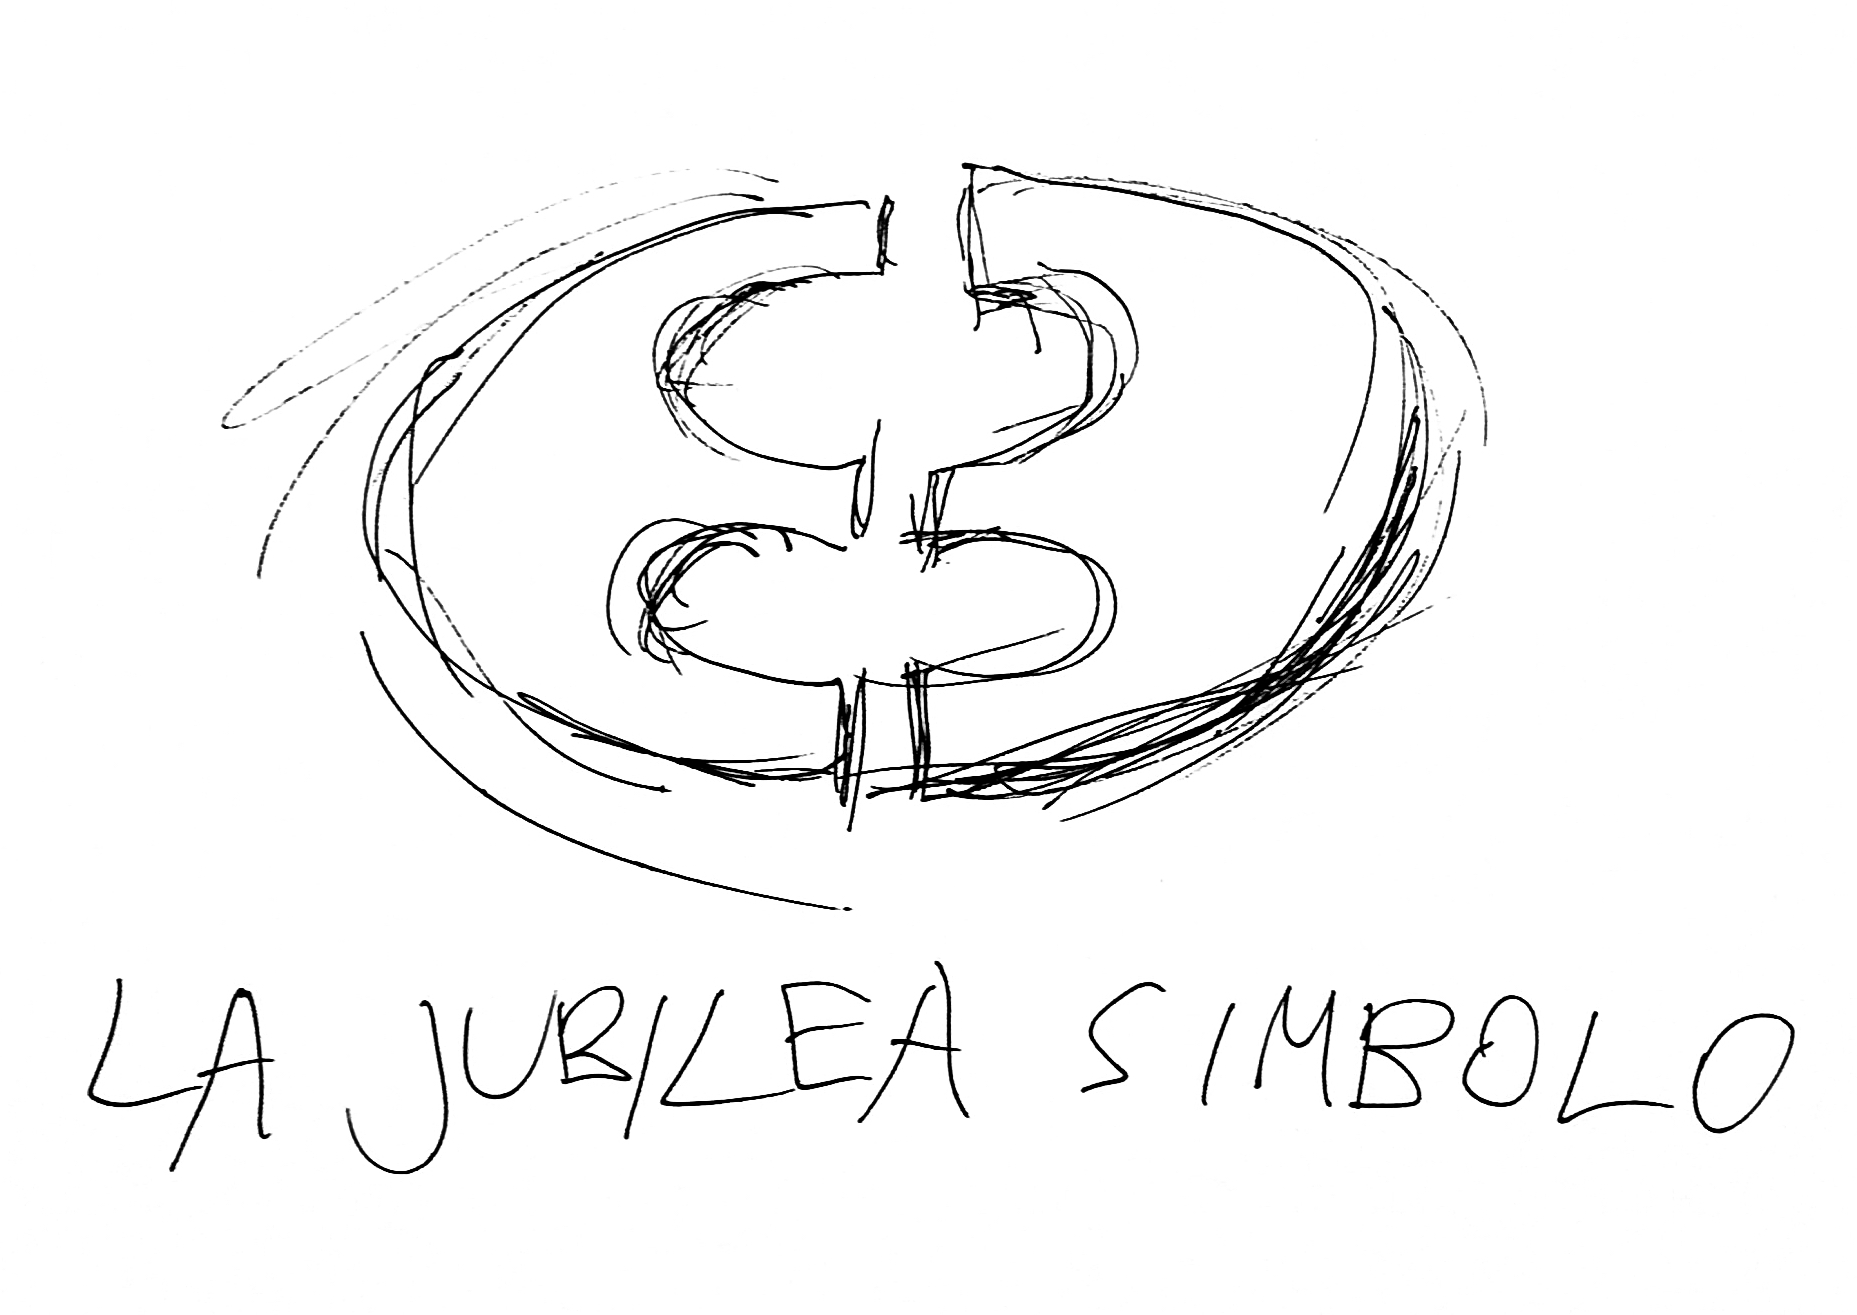 LA JUBILEA SIMBOLO